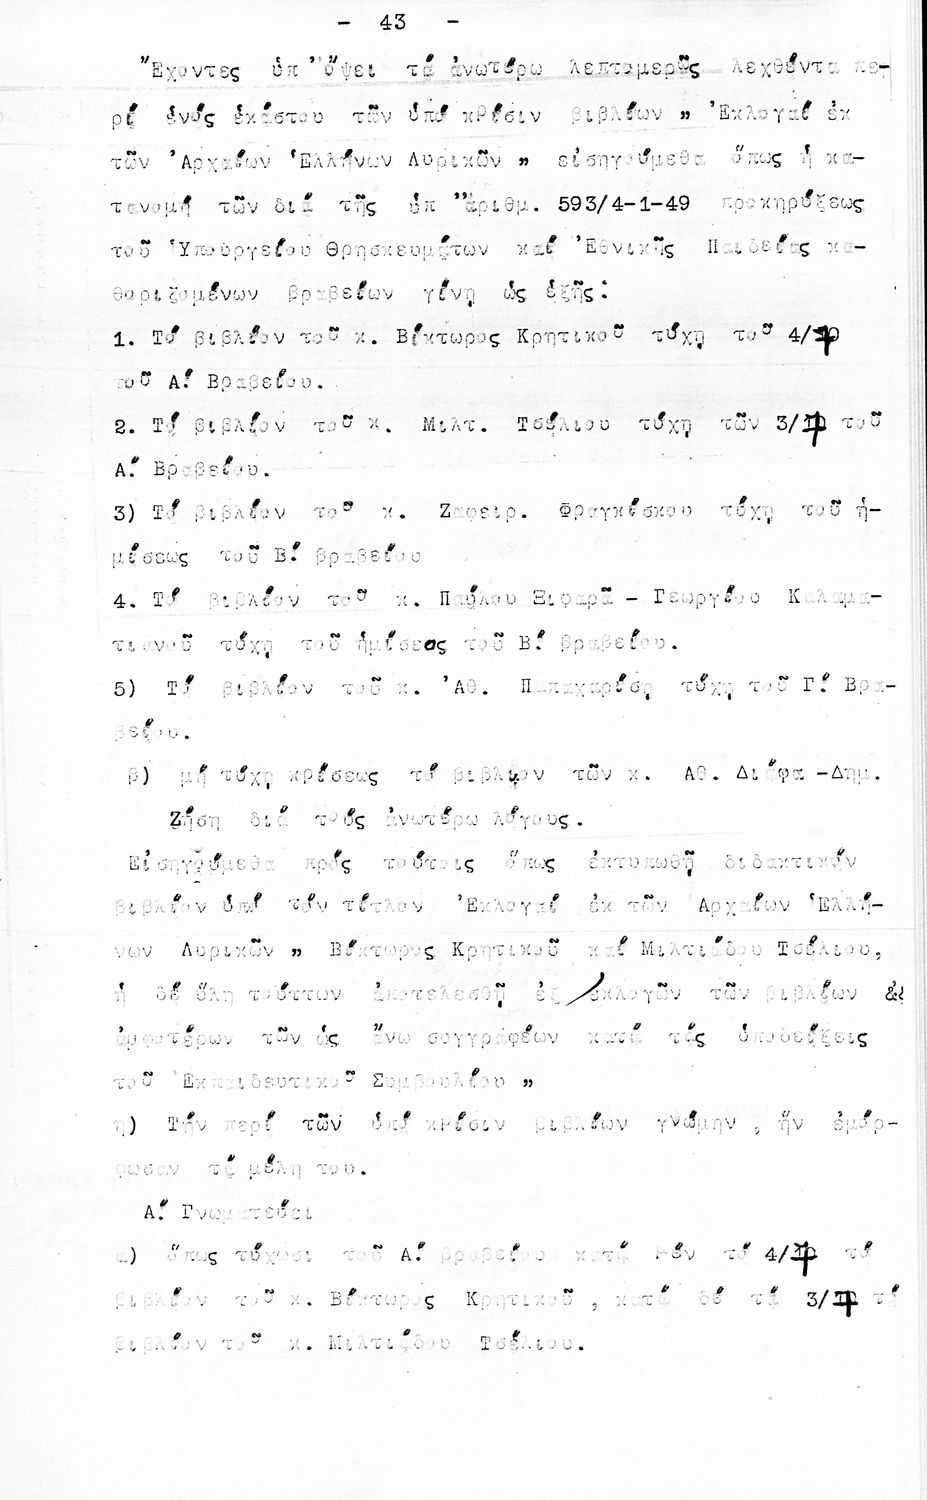 - 43 -
Ἔχοντες ὑπ' ὄψει τά ἀνωτέρω λεπτομερῶς λεχθέντα πε-
ρί ἑνός ἑκάστου τῶν ὑπό κρίσιν βιβλίων " Ἐκλογαί ἐκ
τῶν Ἀρχαίων Ἑλλήνων Λυρικῶν " εἰσηγούμεθα ὅπως ἡ κα-
τανομή τῶν διά τῆς ὑπ' ἀριθμ. 593/4-1-49 προκηρύξεως
τοῦ Ὑπουργείου Θρησκευμάτων καί Ἐθνικῆς Παιδείας κα-
θοριζομένων βραβείων γίνη ὡς ἑξῆς:
1. Τό βιβλίον τοῦ κ. Βίκτωρος Κρητικοῦ τύχη τοῦ 4/7
τοῦ Α! Βραβείου.
2. Τό βιβλίον τοῦ κ. Μιλτ. Τσέλιου τύχη τῶν 3/7 τοῦ
Α! Βραβείου.
3) Τό βιβλίον τοῦ κ. Ζαφειρ. Φραγκίσκου τύχη τοῦ ἡ-
μίσεως τοῦ Β! βραβείου
4. Τό βιβλίον τοῦ κ. Παύλου Ξιφαρᾶ - Γεωργίου Καλαμα-
τιανοῦ τύχη τοῦ ἡμίσεος τοῦ Β! βραβείου.
5) Τό βιβλίον τοῦ κ. Ἀθ. Παπαχαρίση τύχη τοῦ Γ! Βρα-
βείου.
β) μή τύχη κρίσεως τό βιβλίον τῶν κ. Αθ. Διάφα -Δημ.
Ζήση διά τούς ἀνωτέρω λόγους.
Εἰσηγούμεθα πρός τούτοις ὅπως ἐκτυπωθῆ διδακτικόν
βιβλίον ὑπό τόν τίτλον Ἐκλογαί ἐκ τῶν Ἀρχαίων Ἑλλή-
νων Λυρικῶν " Βίκτωρος Κρητικοῦ καί Μιλτιάδου Τσέλιου,
ἡ δέ ὕλη τούττων ἀποτελεσθῆ ἐξ ἐκλογῶν τῶν βιβλίων
ἀμφοτέρων τῶν ὡς ἄνω συγγραφέων κατά τάς ὑποδείξεις
τοῦ Ἐκπαιδευτικοῦ Συμβουλίου "
η) Τήν περί τῶν ὑπό κρίσιν βιβλίων γνώμην , ἥν ἐμόρ-
φωσαν τά μέλη του.
Α! Γνωματεύει
α) ὅπως τύχωσι τοῦ Α! βραβείου κατά μέν τό 4/7 τό
βιβλίον τοῦ κ. Βίκτωρος Κρητικοῦ , κατά δέ τά 3/7 τό
βιβλίον τοῦ κ. Μιλτιάδου Τσέλιου.